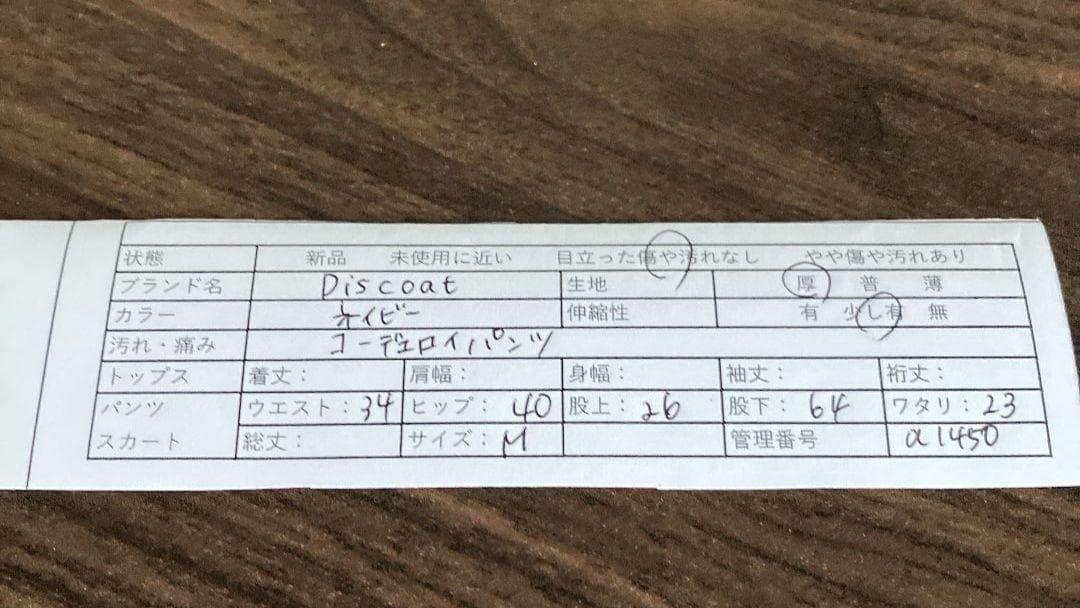 状態 新品 未使用に近い 目立った傷や汚れなし やや傷や汚れあり
ブランド名 Discoat 生地 厚 普 薄
カラー ネイビー 伸縮性 有 少し有 無
汚れ・痛み コーデュロイパンツ
トップス 着丈： 肩幅： 身幅： 袖丈： 裄丈：
パンツ ウエスト：34 ヒップ：40 股上：26 股下：64 ワタリ：23
スカート 総丈： サイズ：M 管理番号 α1450